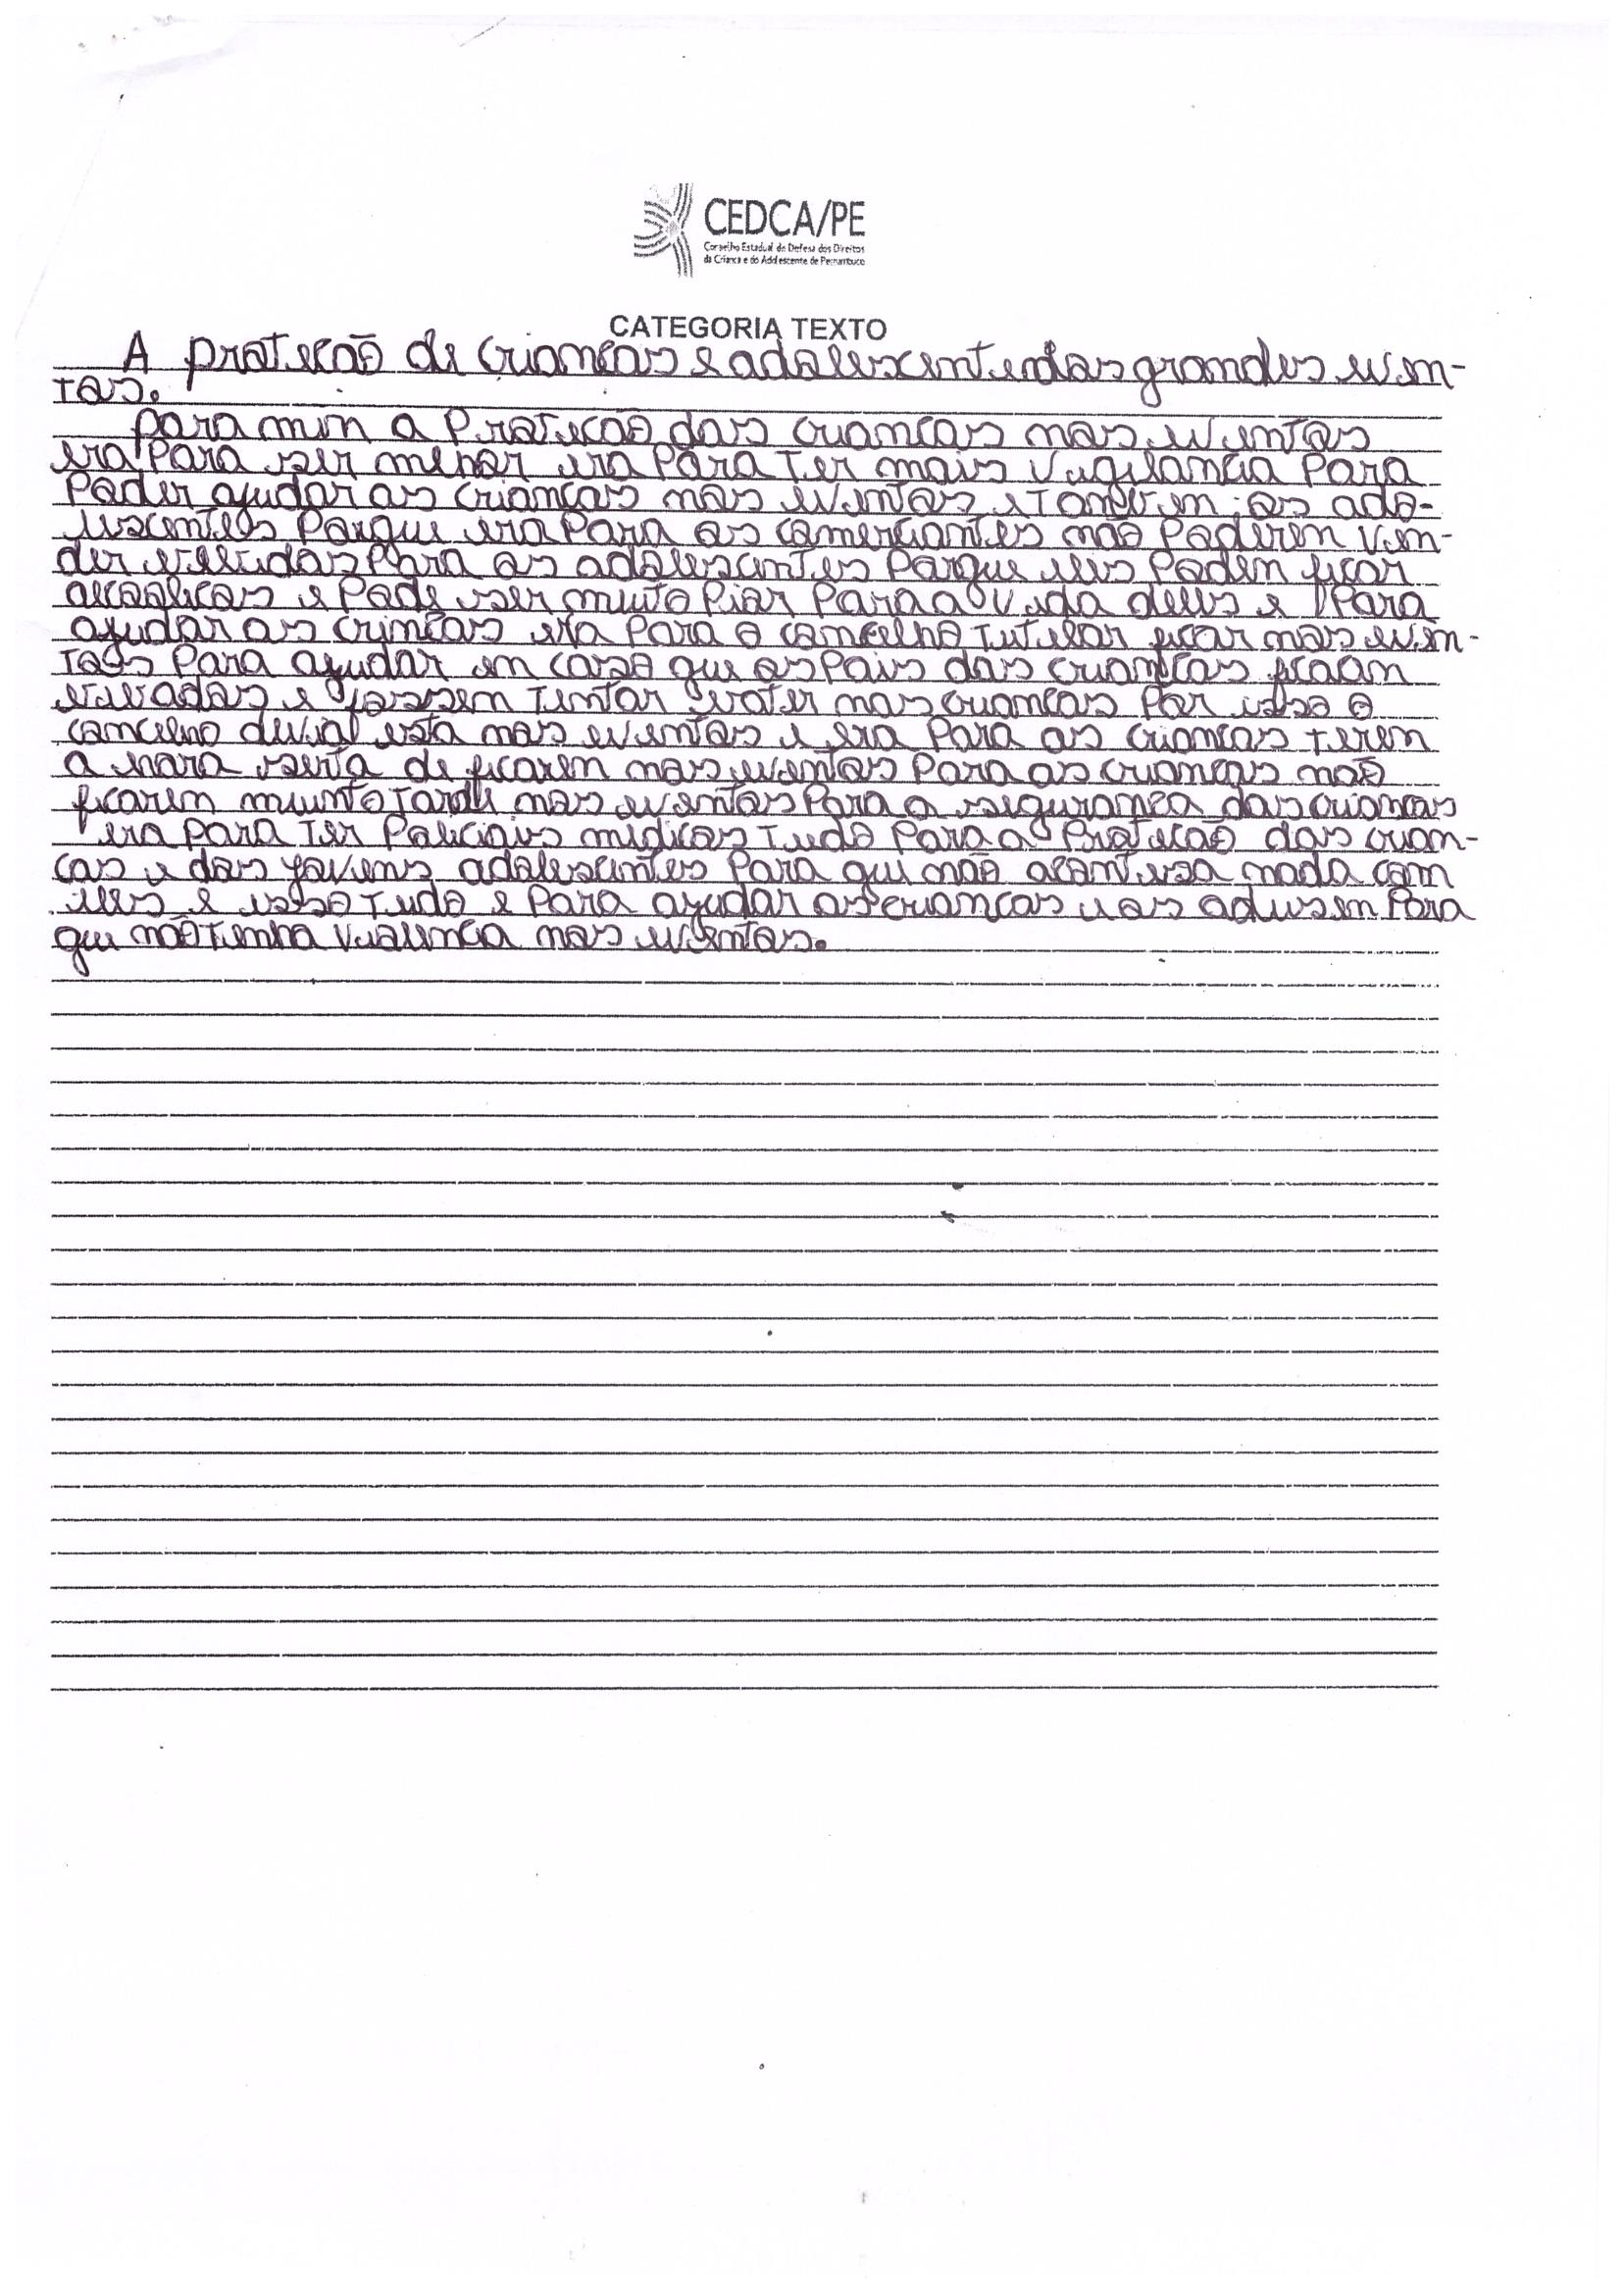 CEDCA/PE
Conselho Estadual de Defesa dos Direitos
da Criança e do Adolescente de Pernambuco
CATEGORIA TEXTO
A proteção de crianças e adolescente dos grandes even-
tos.
para mim a Proteção das crianças nos eventos
era Para ser melhor era Para Ter mais Vigilancia Para
Poder ajudar as crianças nos eventos e Tanbem os ado-
lescentes Porque era Para os comerciantes não Poderem Ven-
der bebidas Para os adolescentes Porque eles Poden ficar
alcoolicos e Pode ser muito Pior Para a Vida deles e Para
ajudar as crinças era Para o concelho Tutelar ficar nos even-
Tos Para ajudar em caso que os Pais das crianças ficam
bebados e fossem Tentar bater nas crianças Por isso o
concelho devial esta nos eventos e era Para as crianças Terem
a hora serta de ficarem nos eventos Para as crianças não
ficarem muinto Tarde nos eventos Para a segurança das crianças
era Para Ter Policiais medicos Tudo Para a Proteção das crian-
ças e dos jovens adolescentes Para qui não acontesa nada com
eles e isso Tudo e Para ajudar as crianças e os Para
qui não Tenha Violencia nos eventos.